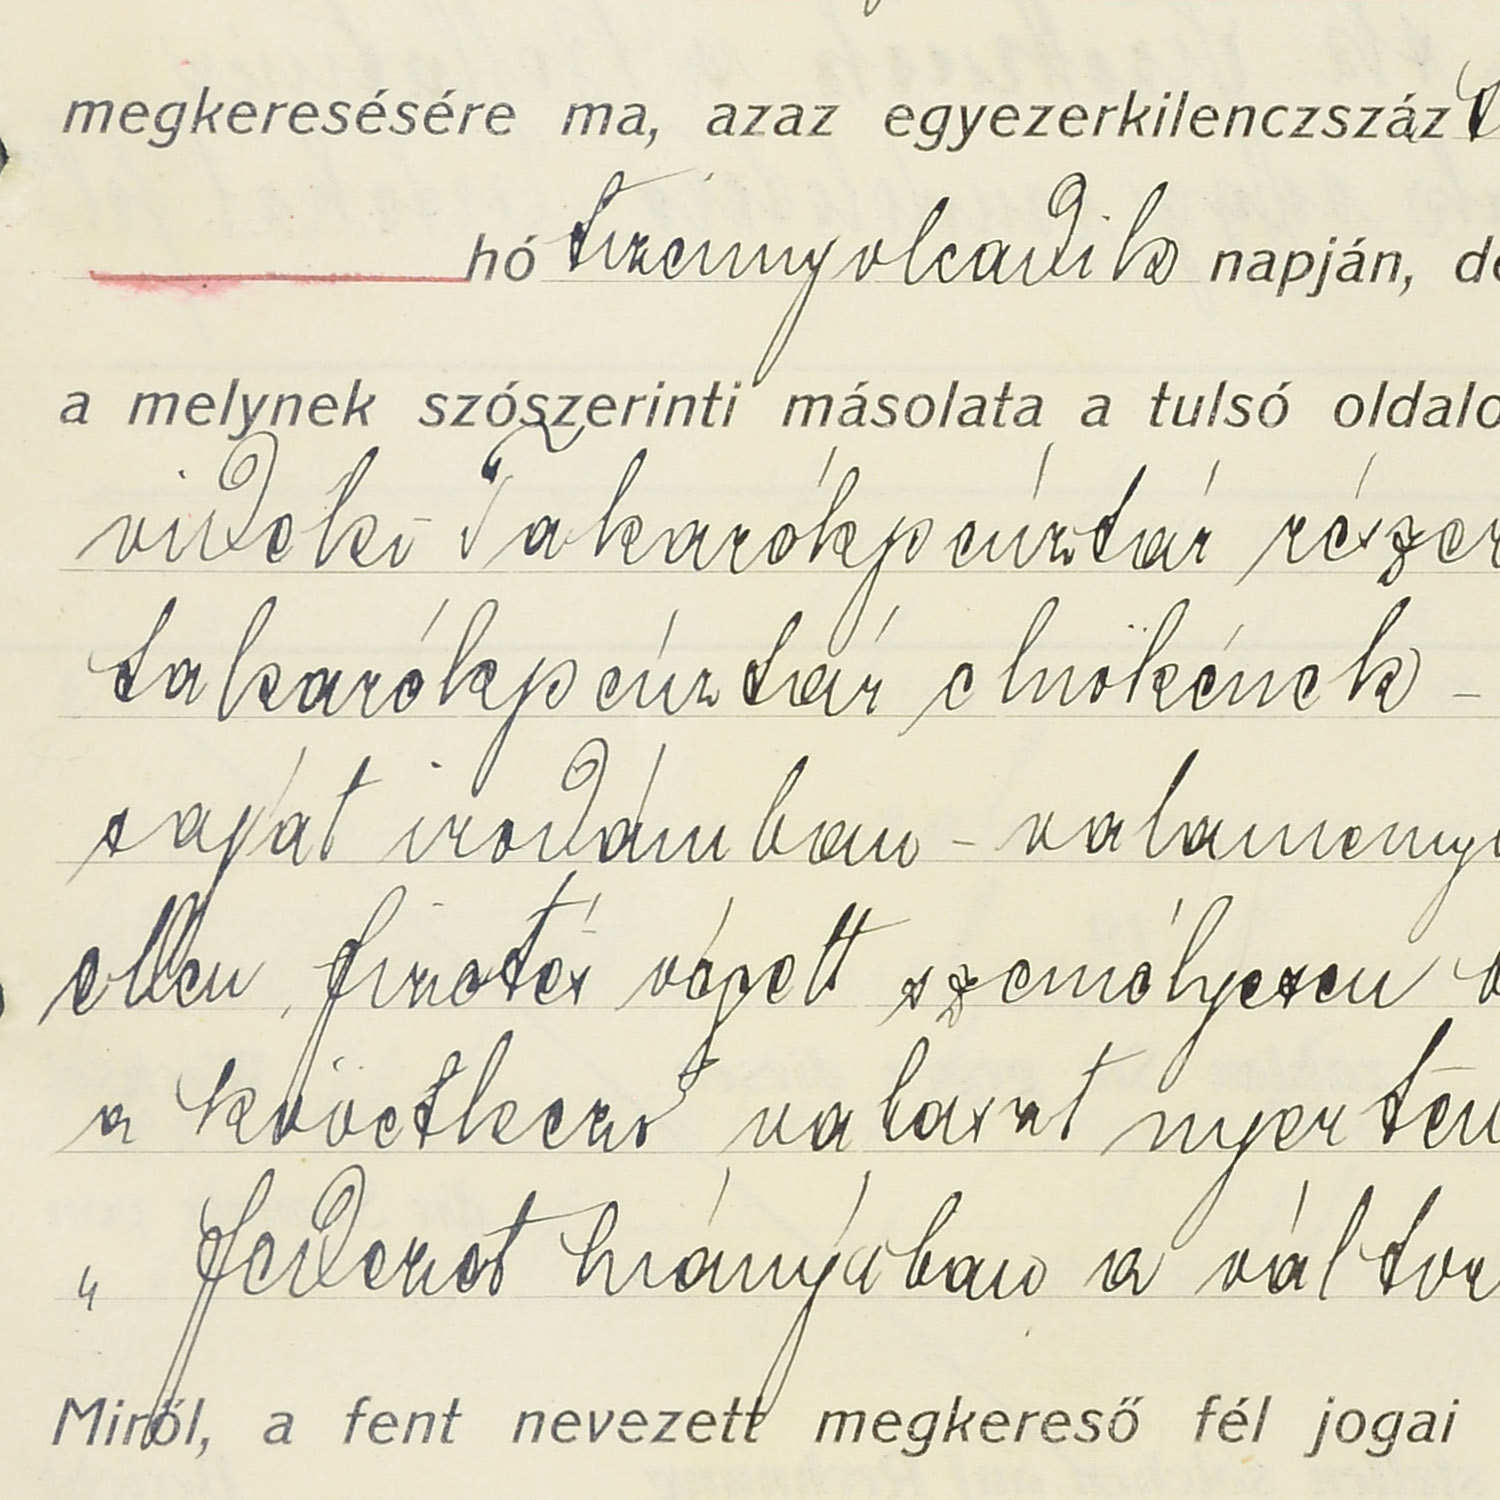 megkeresésére ma, azaz egyezerkilenczszáz
hó tizennyolcadik napján, de
a melynek szószerinti másolata a tulsó oldalo
vidéki Takarékpénztár részér
takarékpénztár elnökének –
saját irodámban – valamenny
ellen fizetés végett személyesen
a következő választ nyertem
„ fedezet hiányában a vált
Miről, a fent nevezett megkereső fél jogai